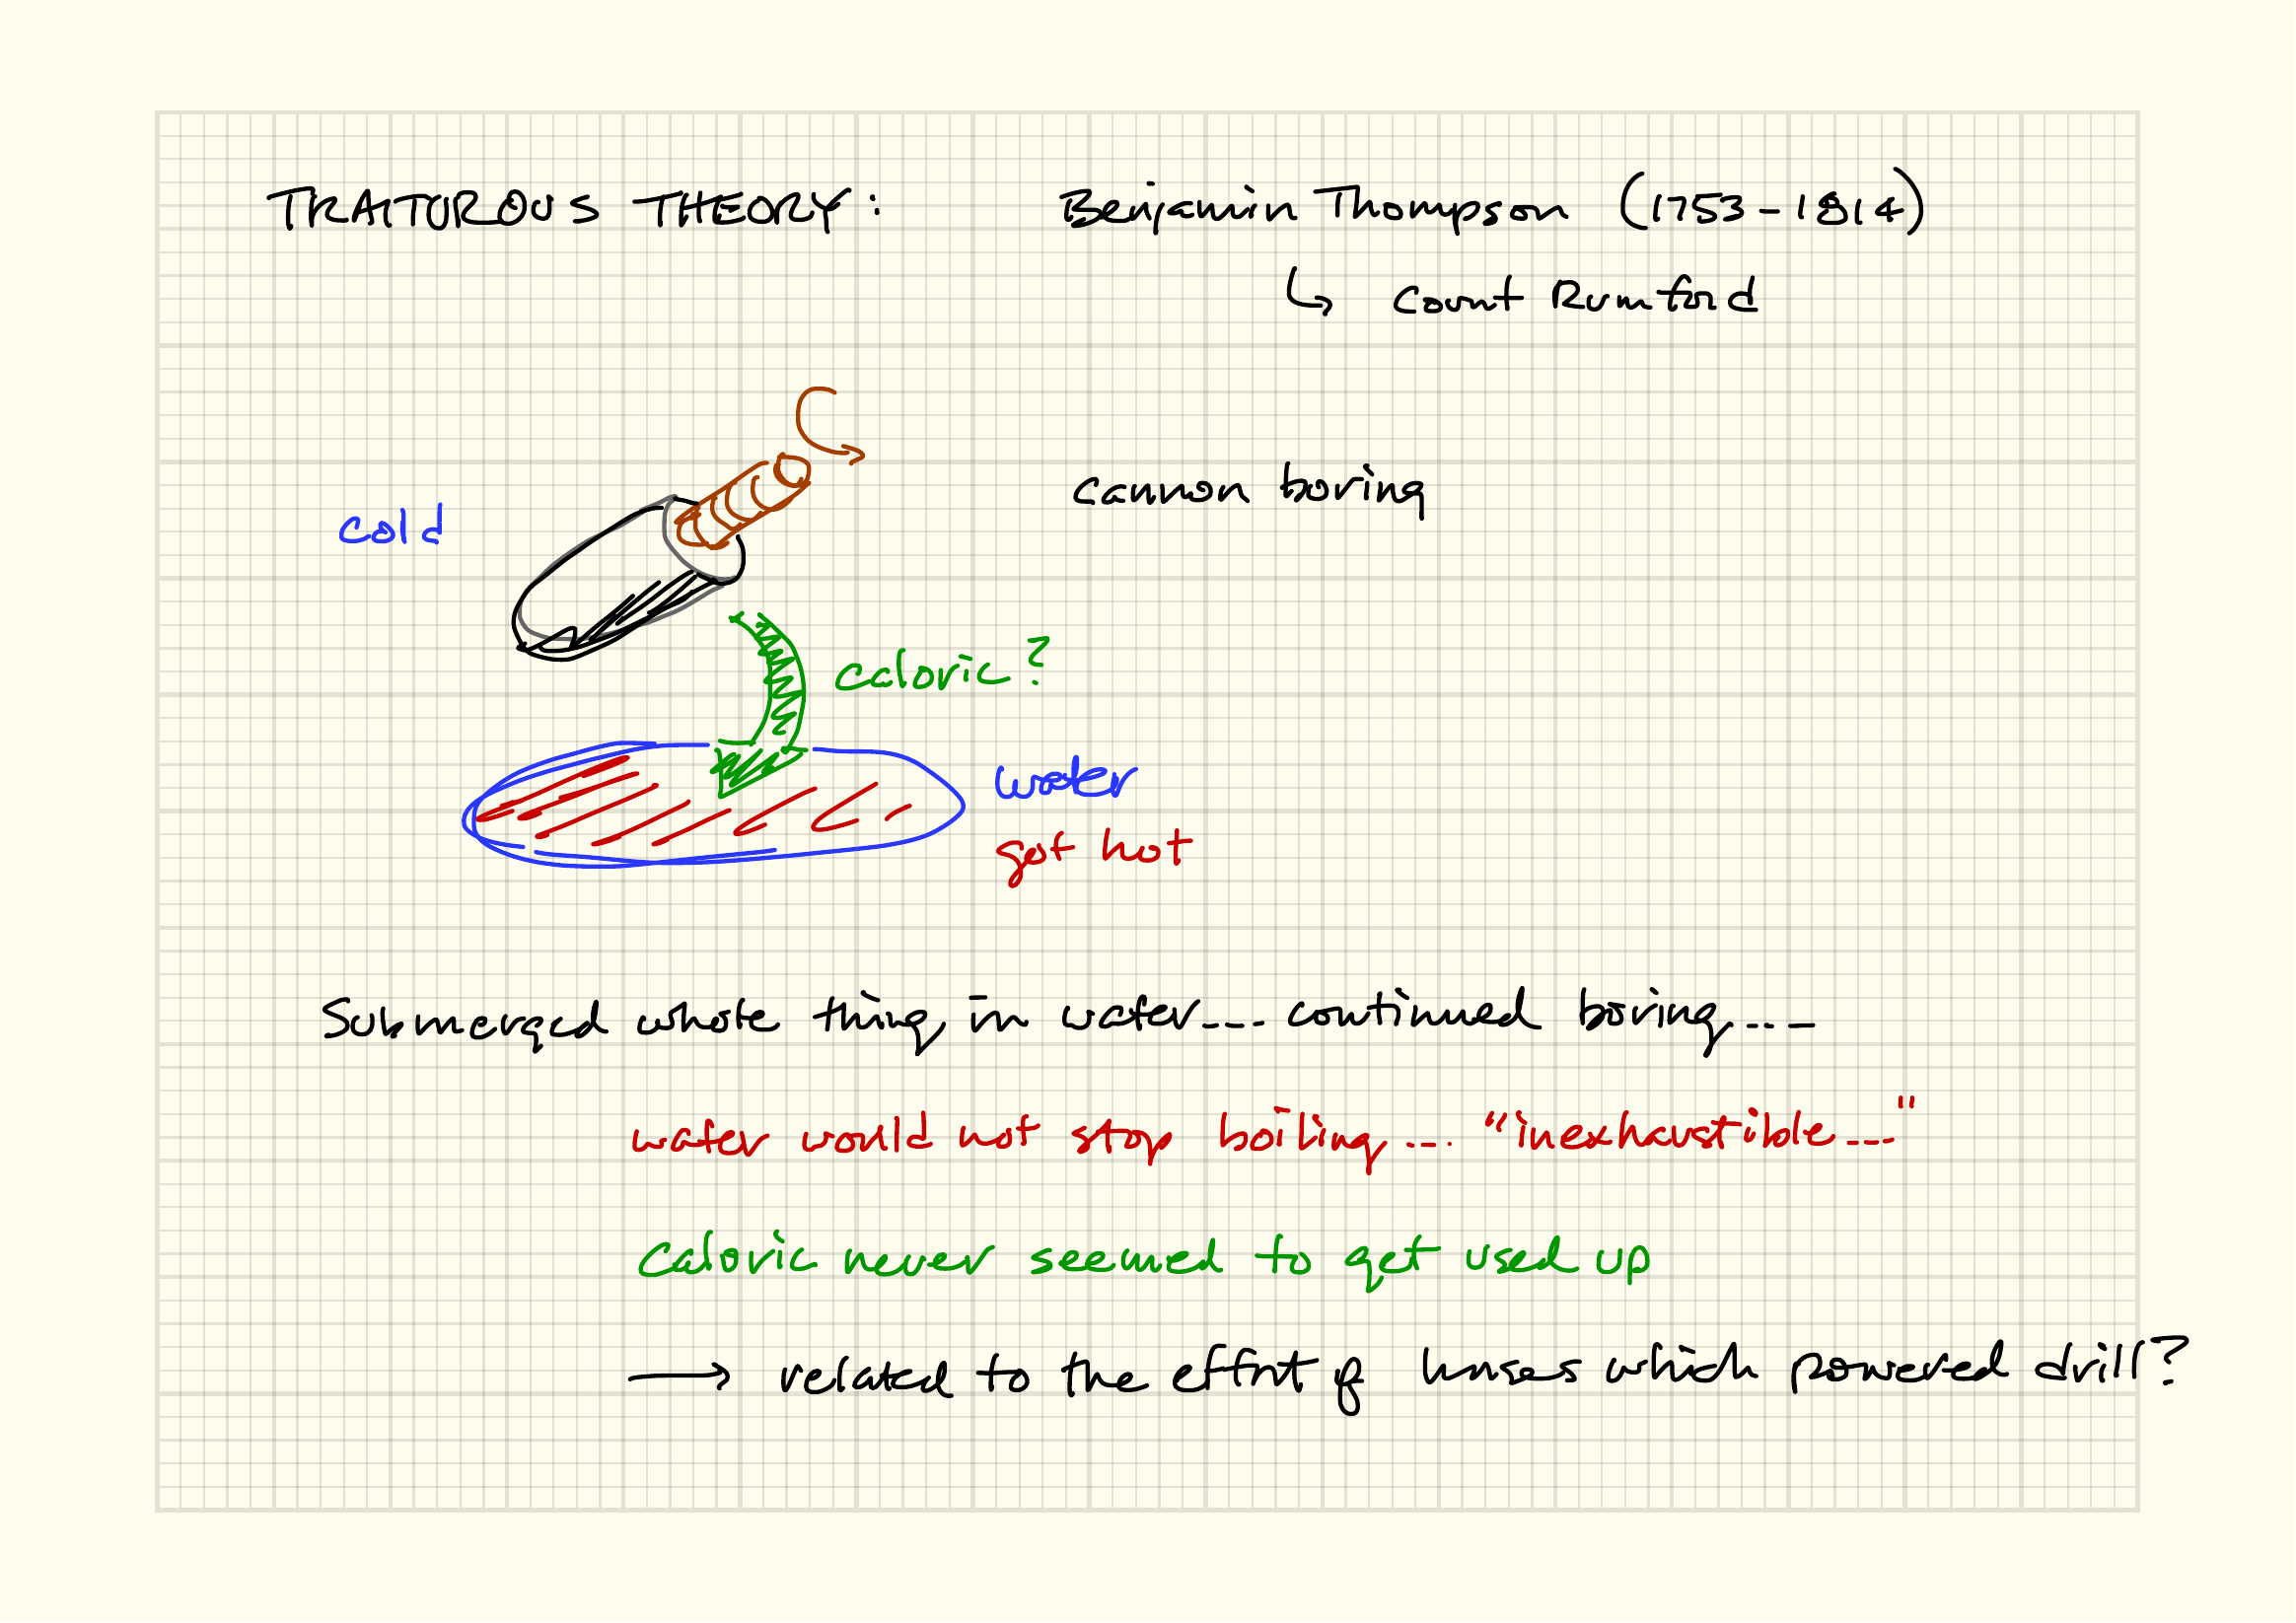 TRAITUROUS THEORY: Benjamin Thompson (1753-1814)
↳ Count Rumford
cannon boring
cold
caloric?
water
got hot
Submerged whole thing in water.... continued boring....
water would not stop boiling.... "inexhaustible...."
Caloric never seemed to get used up
→ related to the effort of horses which powered drill?